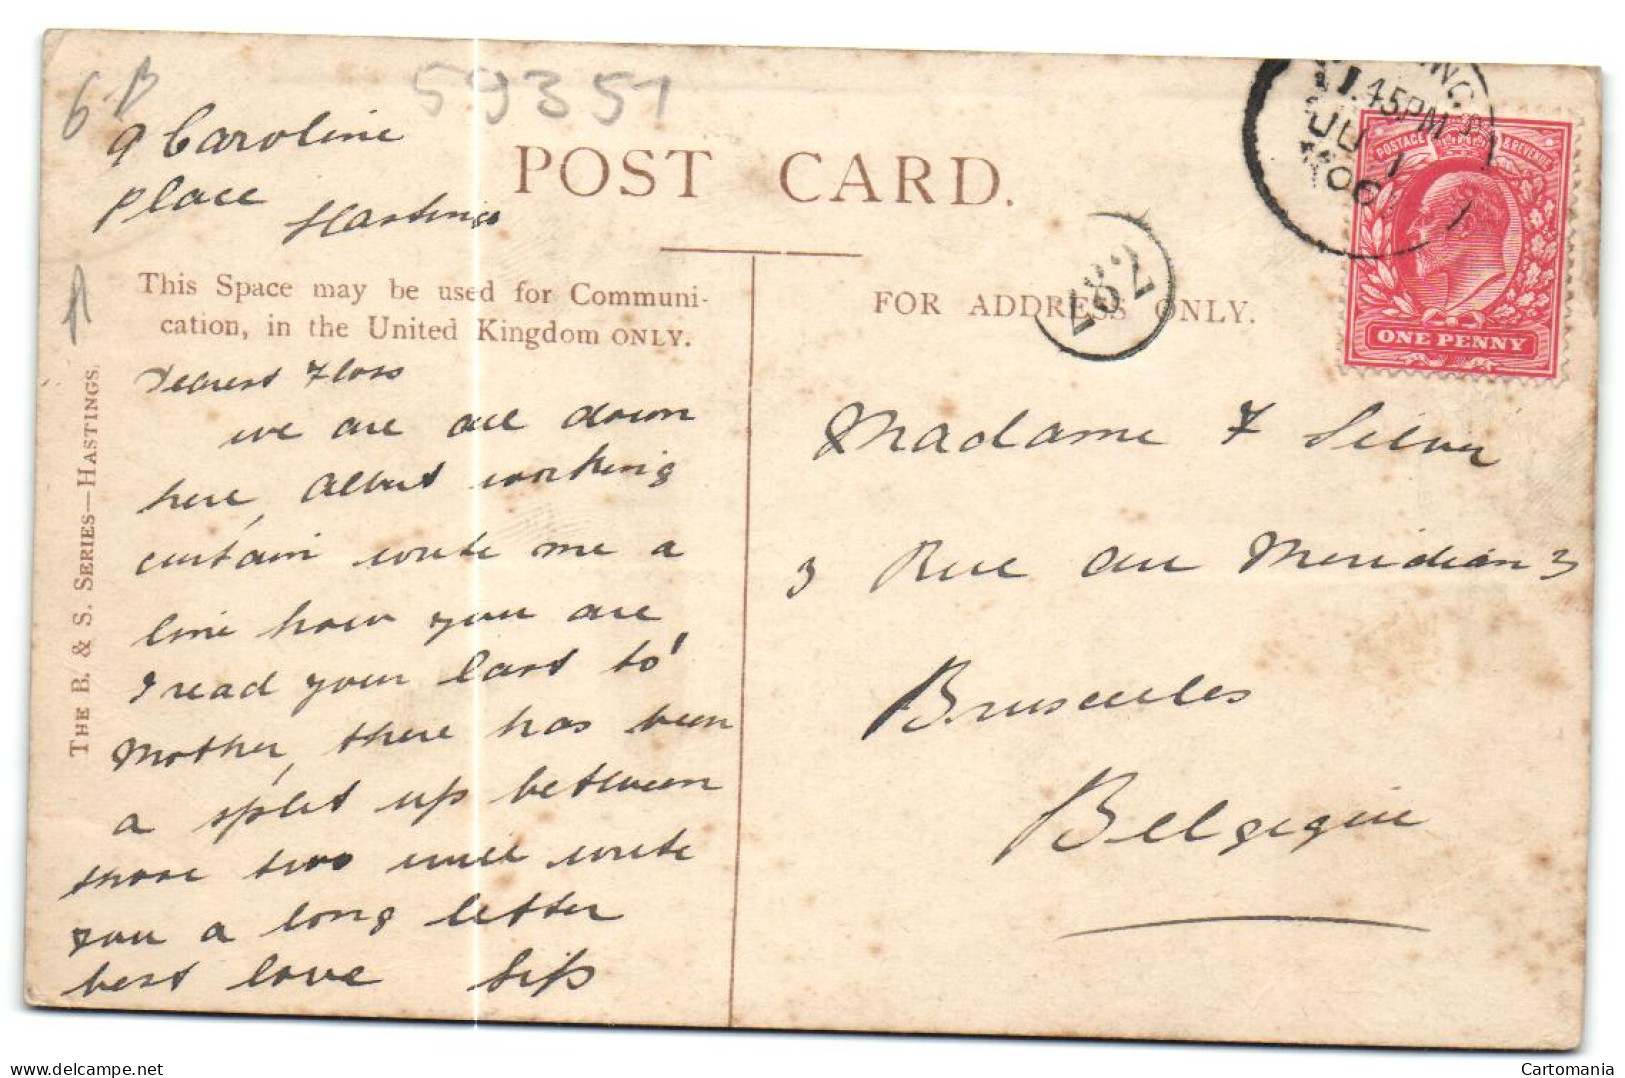 6 B
59351
9 Caroline
Place
Hastings
POST CARD.
This Space may be used for Communi-
cation, in the United Kingdom ONLY.
FOR ADDRESS ONLY.
THE B. & S. SERIES—HASTINGS.
Dearest Floss
we are all down
here, Albert working
curtain write me a
line how you are
I read your last to
Mother, there has been
a split up between
those two will write
you a long letter
best love Sis
Madame F Silver
3 Rue du Meridian 3
Bruxelles
Belgique
287
.45PM
JU 1
06
POSTAGE & REVENUE
ONE PENNY
Cartomania